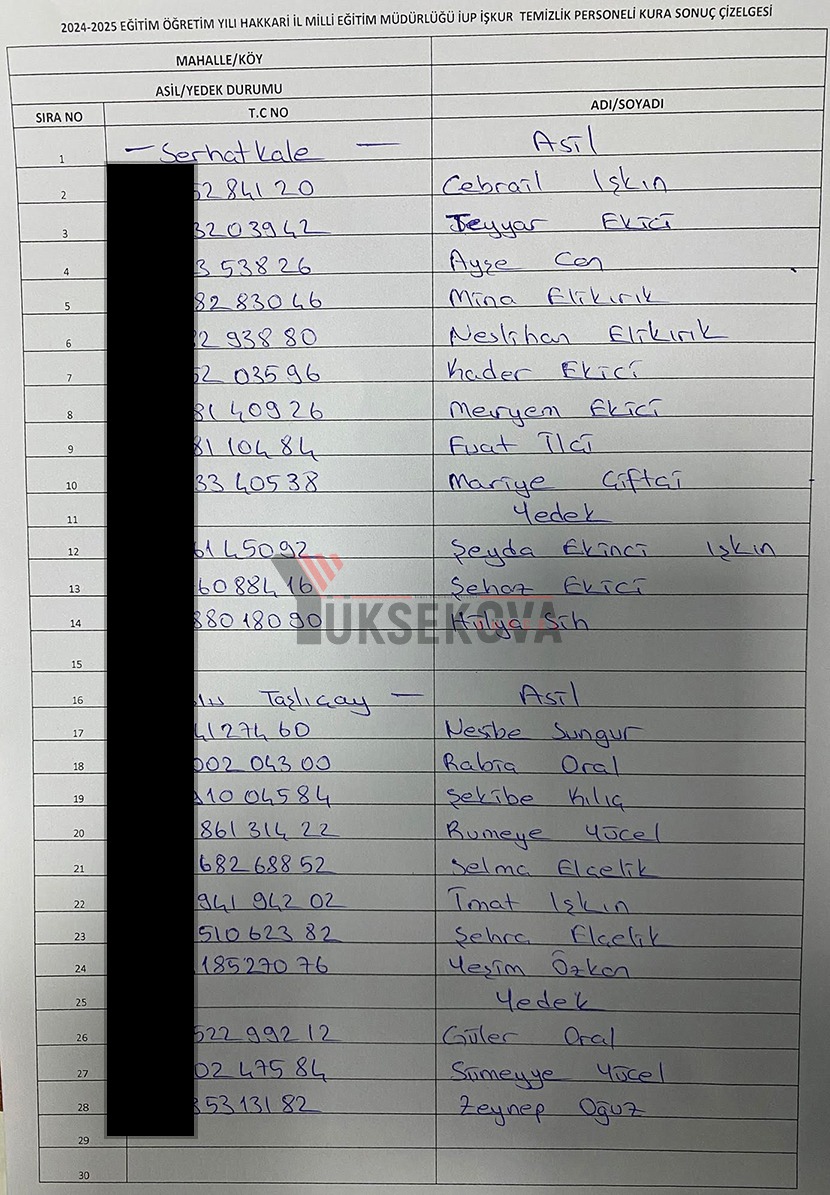 2024-2025 EĞİTİM ÖĞRETİM YILI HAKKARİ İL MİLLİ EĞİTİM MÜDÜRLÜĞÜ İUP İŞKUR TEMİZLİK PERSONELİ KURA SONUÇ ÇİZELGESİ
MAHALLE/KÖY
ASİL/YEDEK DURUMU
SIRA NO T.C NO ADI/SOYADI
1 — Serhatkale — Asil
2 52 841 20 Cebrail Işkın
3 3203942 Teyyar Ekici
4 3 538 26 Ayşe Can
5 82 830 46 Mina Elikırık
6 2 938 80 Neslihan Elikırık
7 52 03596 Kader Ekici
8 81 40926 Meryem Ekici
9 81 104 84 Fuat İlci
10 33 40538 Mariye Çiftçi
11 Yedek
12 61 45092 Şeyda Ekinci Işkın
13 60884 16 Şehaz Ekici
14 880 180 90 Hülya Sih
YÜKSEKOVA
15
16 Taşlıçay — Asil
17 41 274 60 Nesibe Sungur
18 002 043 00 Rabia Oral
19 10 045 84 Şekibe Kılıç
20 861 314 22 Rumeye Yücel
21 682 688 52 Selma Elçelik
22 941 942 02 İmat Işkın
23 510 623 82 Şehra Elçelik
24 185270 76 Yeşim Özkan
25 Yedek
26 522 992 12 Güler Oral
27 02 475 84 Sümeyye Yücel
28 353 131 82 Zeynep Oğuz
29
30